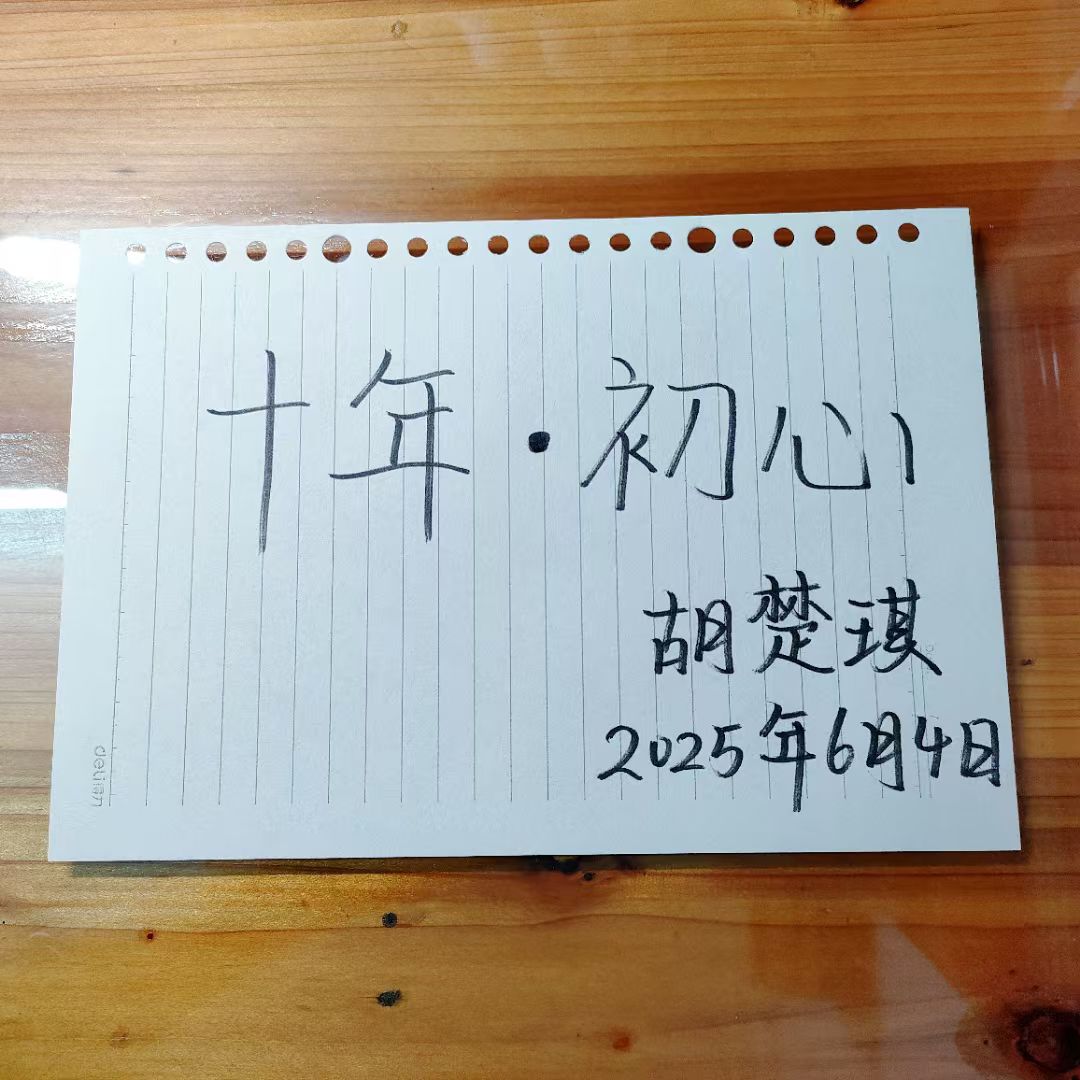 十年·初心
胡楚琪
2025年6月4日
deli